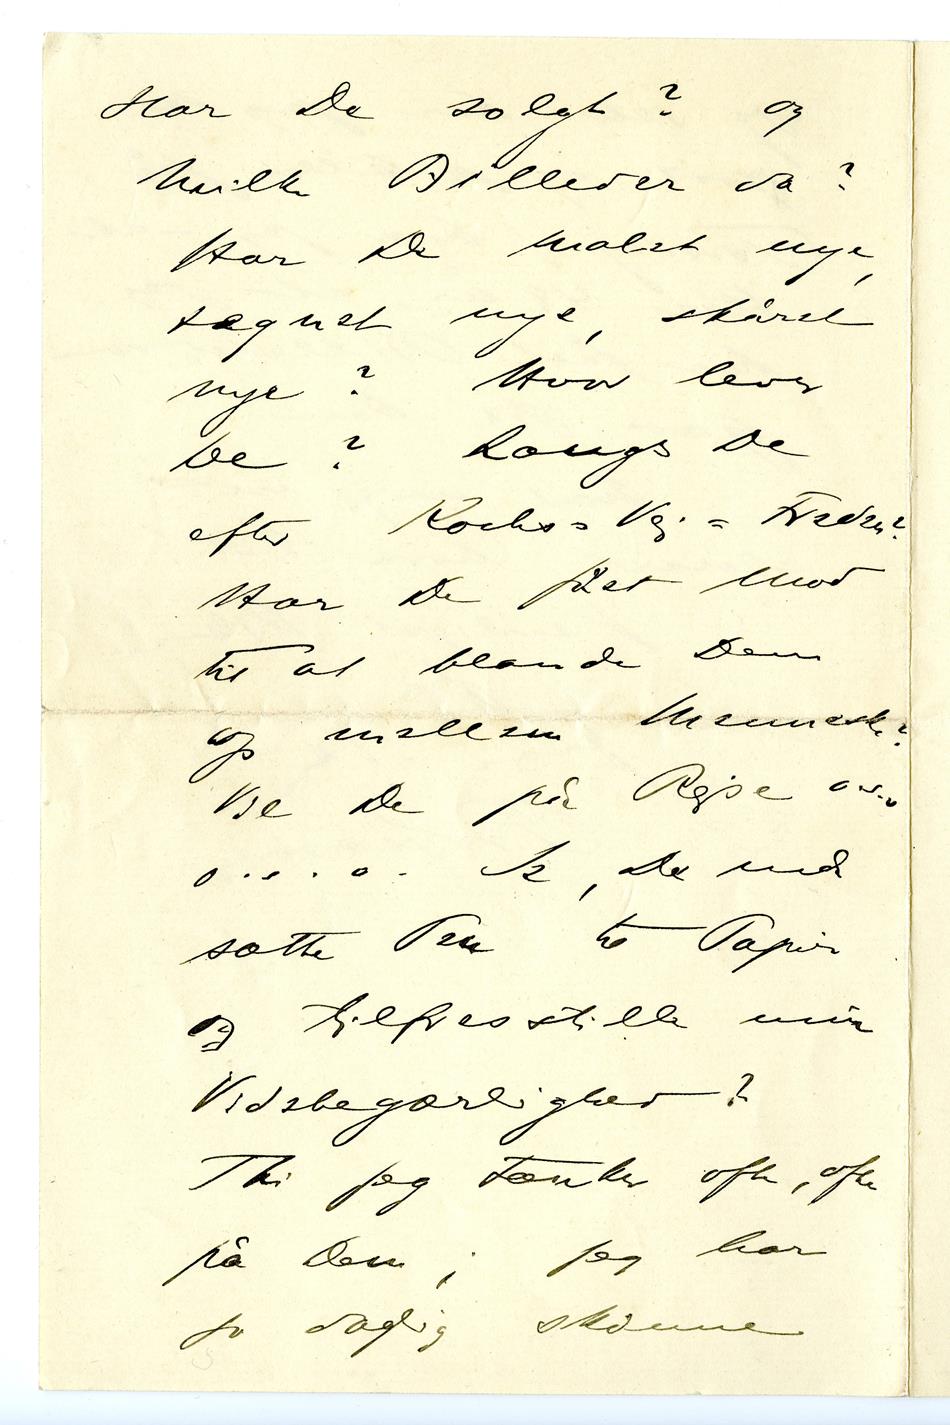 Har De solgt? og
hvilke Billeder da?
Har De malet nye,
tegnet nye, skåret
nye? Hvor lever
De? Længs De
efter Kochs=Vej=Freden?
Har De fået Mod
til at blande Dem
op mellem Mennesker?
Vil De på Rejse o.s.v
o.s.v. Se, De må
sætte Pen til Papir
og tilfresstille min
Vidsbegærlighed?
Thi jeg tænker ofte, ofte
på Dem; jeg har
jo daglig skønne